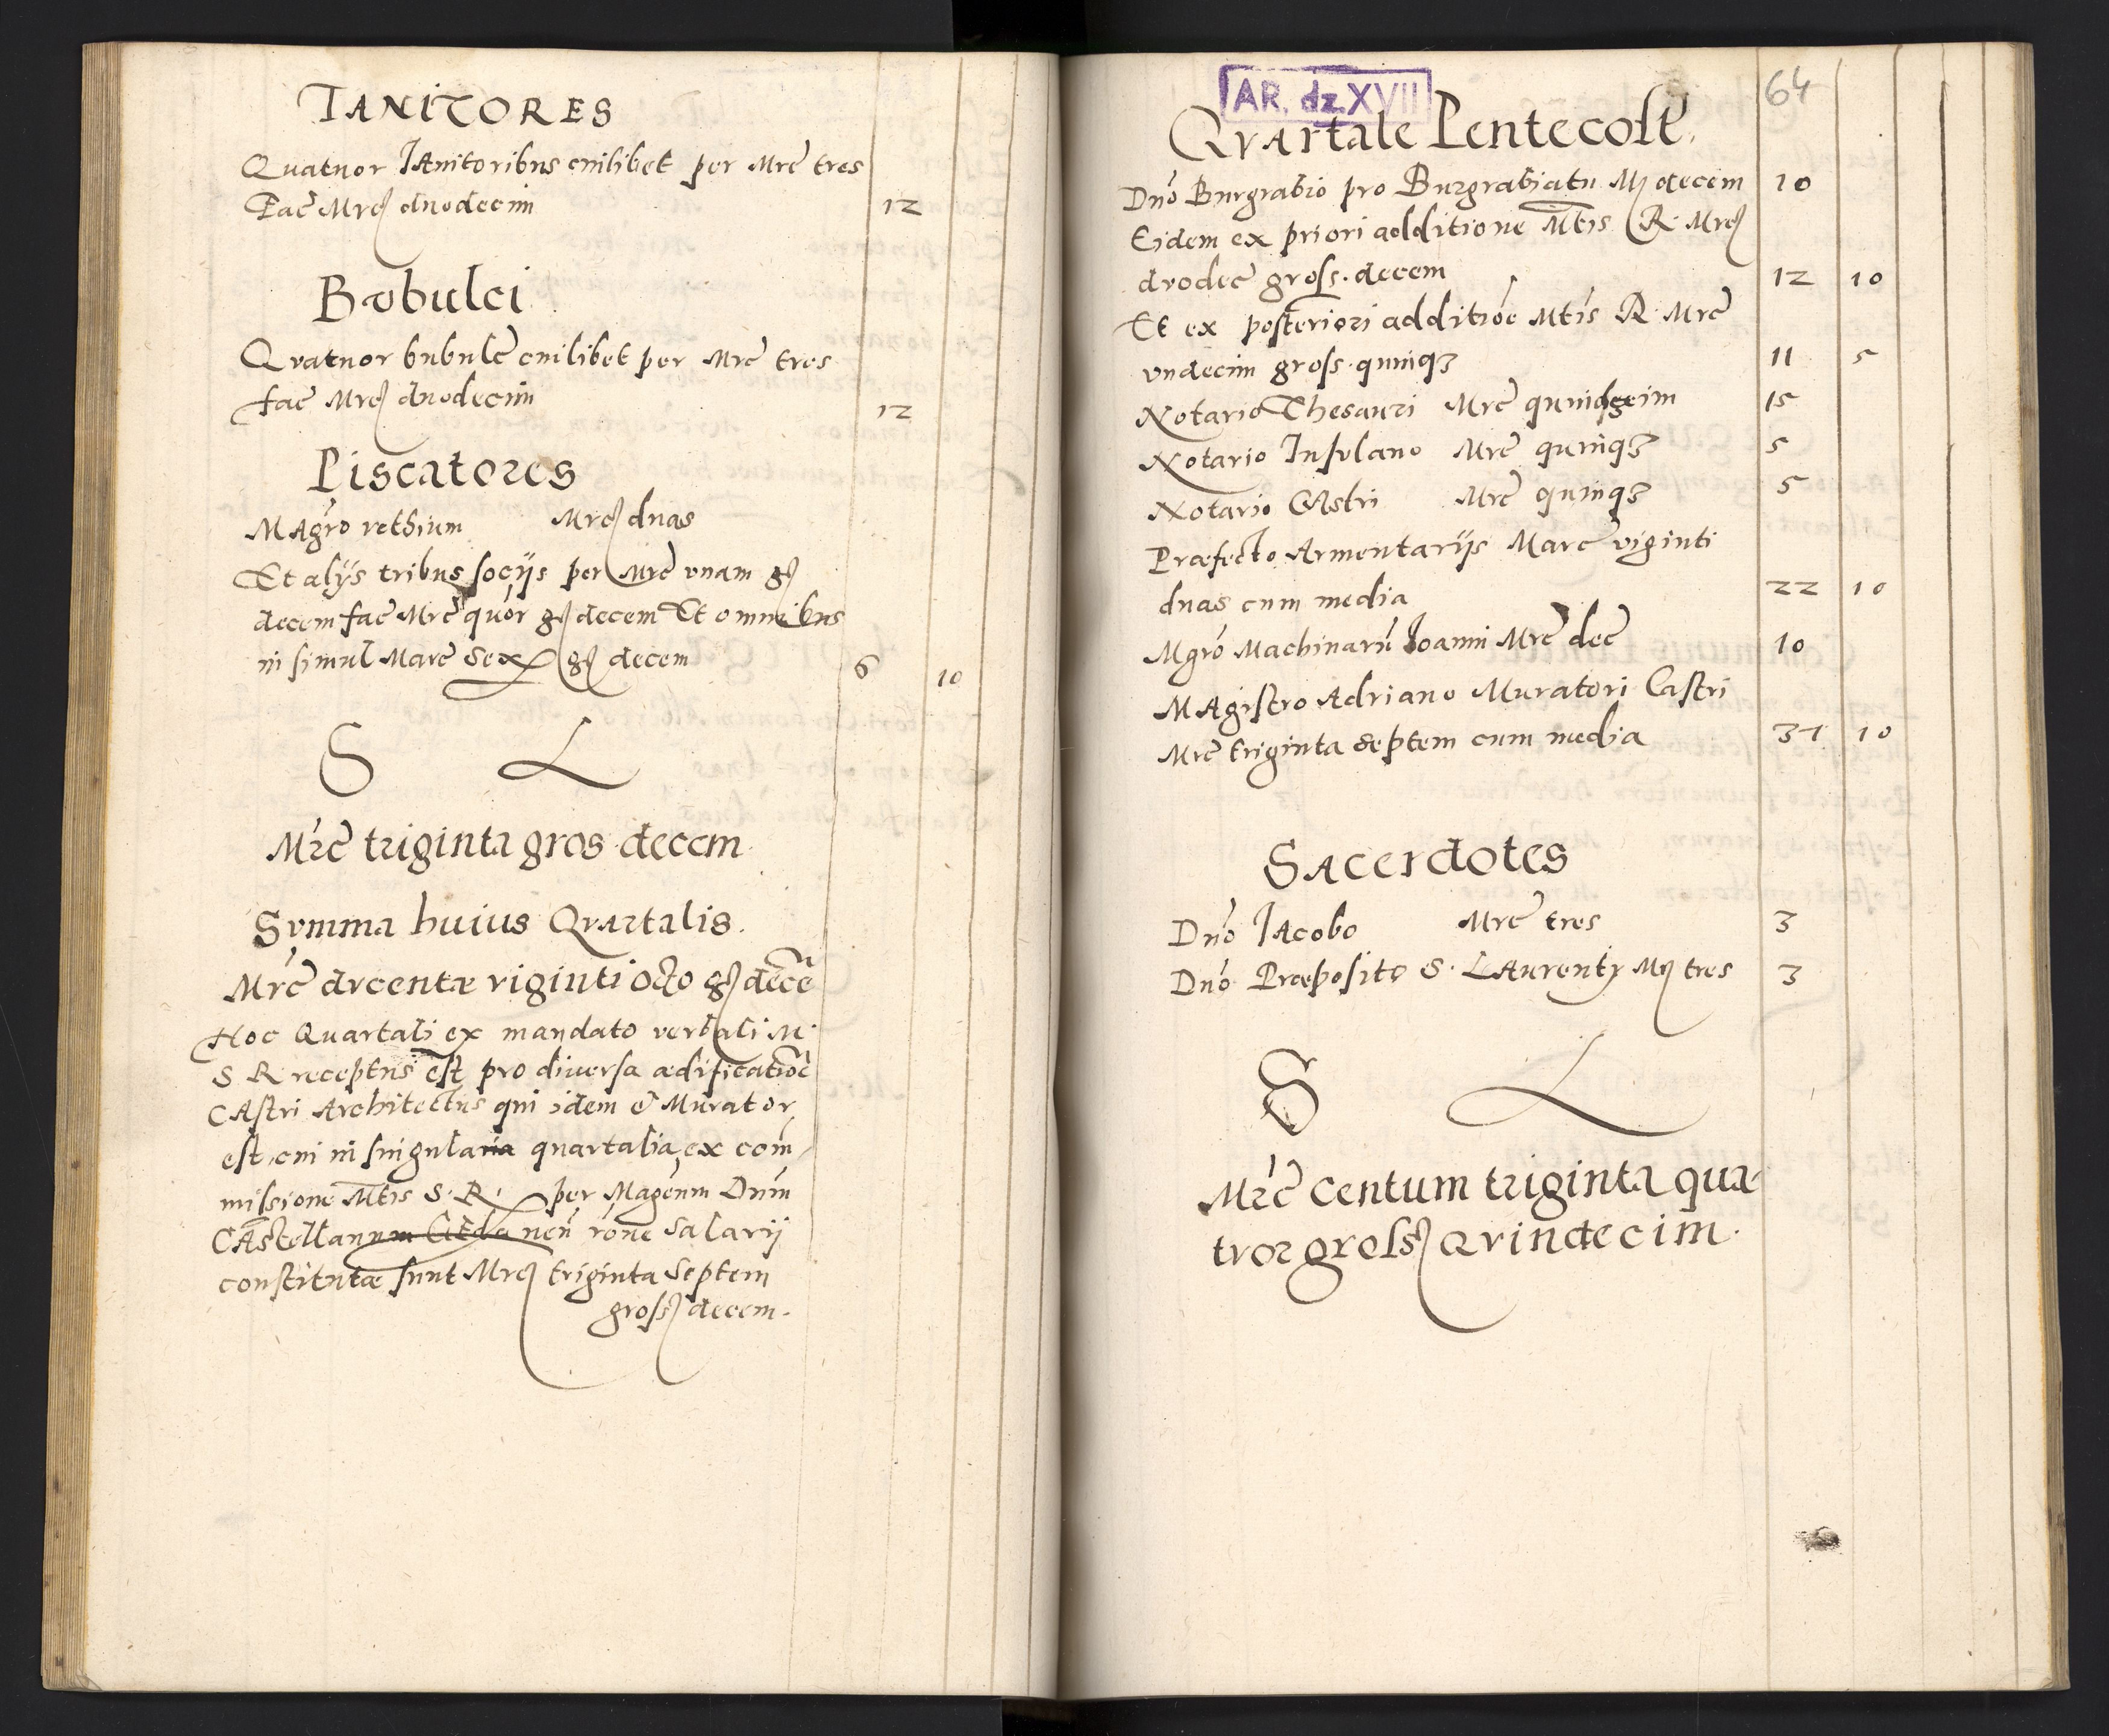 IANITORES
Quatuor IAnitoribus cuilibet per Mrc̃ tres
Fac̃ Mrcȩ duodecim 12
Bvbulci
Qvatuor bubulc̃ cuilibet per Mrc̃ tres
fac̃ Mrcȩ duodecim 12
Piscatores
MAgr̃o rethium Mrcȩ duas
Et alÿs tribus socijs per Mrc̃ vnam gȩ
decem fac̃ Mrc̃ quor gȩ decem Et omnibus
in simul Marc̃ Sex gȩ decem 6 10
S L
Mrc̃ triginta gros decem
Svmma huius Qvartalis.
Mrc̃ dvcentæ viginti octo gȩ decẽ
Hoc Quartali ex mandato verbali M.
S R receptus est pro diuersa ædificatiõe
CAstri Architectus qui idem & Murator
est, cui in singularia quartalia, ex com
missione Mtis S. R. per Magcum Dnm̃
CAstellanum Geda neñ rone Salarij
constitutæ sunt Mrcȩ triginta Septem
grossȩ decem.
AR. dz. XVII
64
Qvartale Pentecost.
Dño Burgrabio pro Burgrabiatu Mȩ decem 10
Eidem ex priori additione Mtis R. Mrcȩ
dvodec̃ gross. decem 12 10
Et ex posteriori additiõe Mtis R. Mrc̃
vndecim gross. quinqʒ 11 5
Notario Thesauri Mrc̃ quindecim 15
Notario Insvlano Mrc̃ quinqʒ 5
Notario CAstri Mrc̃ quinqʒ 5
Præfecto Armentarijs Marc̃ viginti
duas cum media 22 10
Mgrõ Machinarũ Ioanni Mrc̃ dec̃ 10
MAgistro Adriano Muratori Castri
Mrc̃ triginta septem cum media 37 10
SAcerdotes
Dño IAcobo Mrc̃ tres 3
Dño Præposito S. LAurentÿ Mȩ tres 3
S L
Mrc̃ Centum triginta qua-
tvor grossȩ Qvindecim.